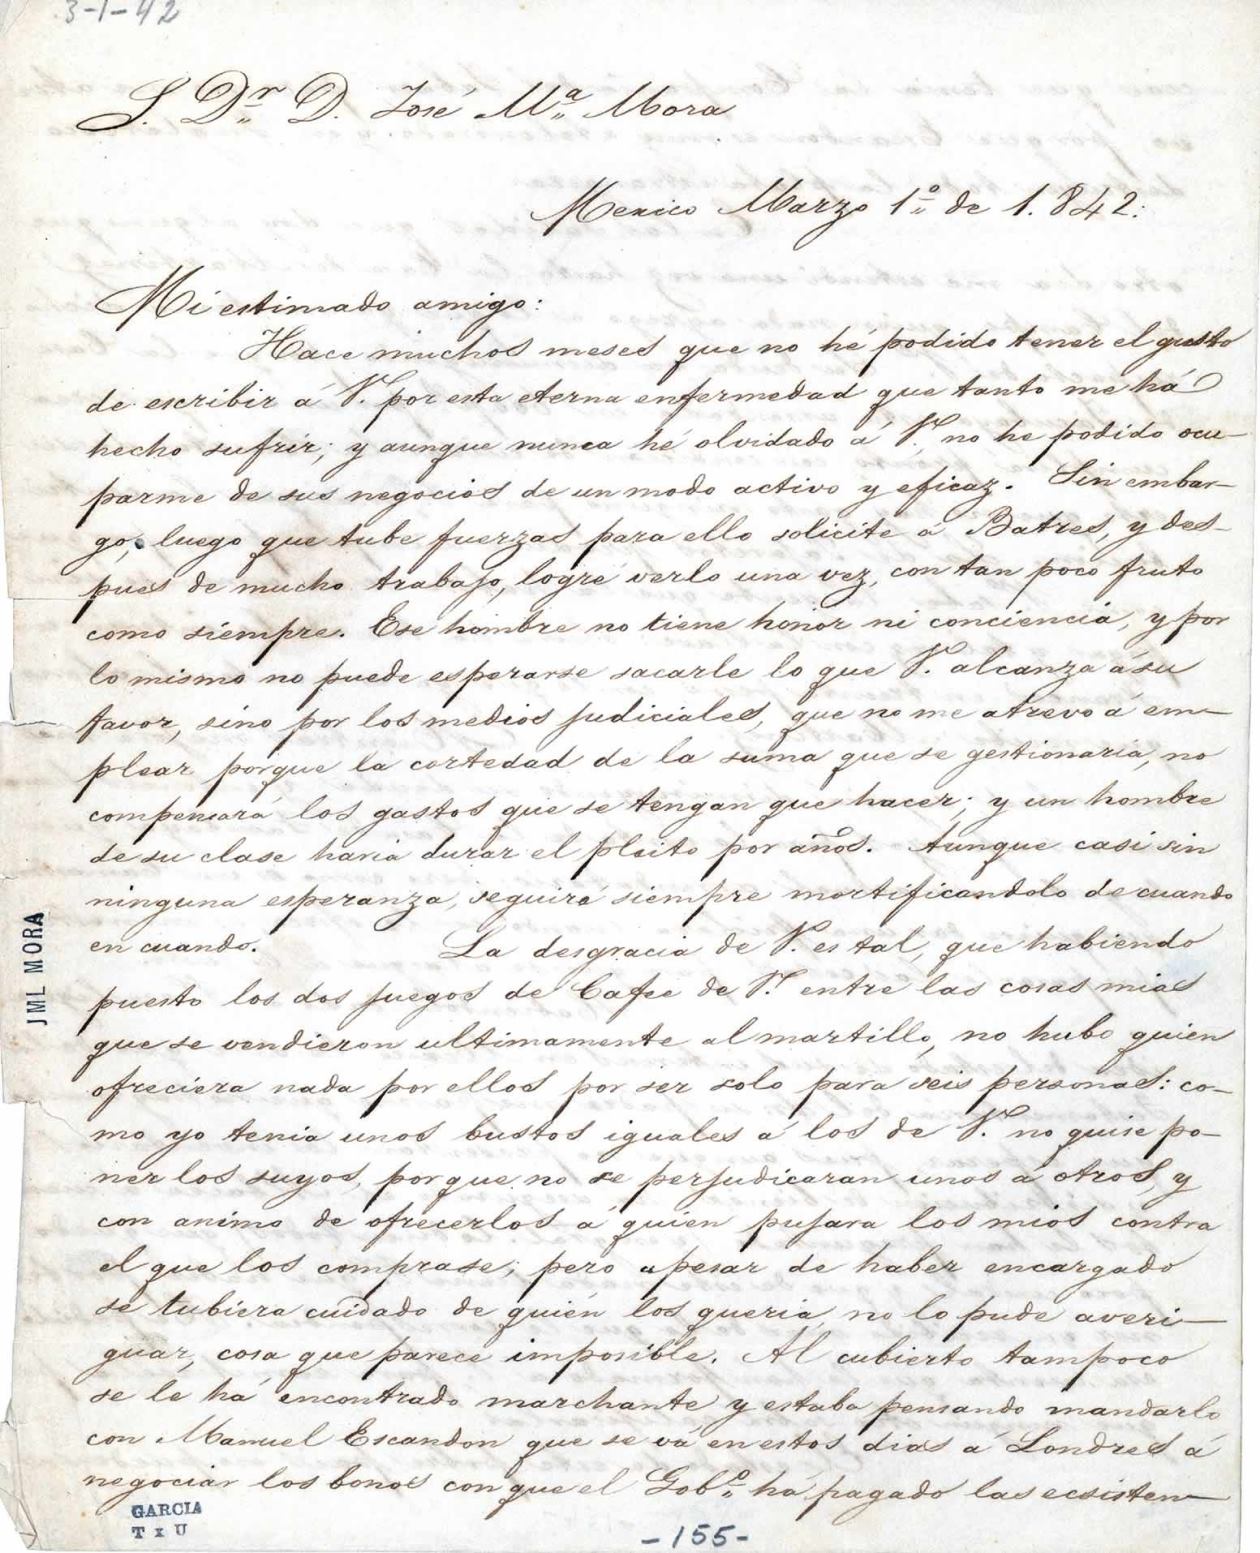 3-1-42
S. Dr. D. José Ma. Mora
Mexico Marzo 1o. de 1.842:
Mi estimado amigo:
Hace muchos meses que no hé podido tener el gusto
de escribir á V. por esta eterna enfermedad que tanto me há
hecho sufrir; y aunque nunca hé olvidado á V. no he podido ocu-
parme de sus negocios de un modo activo y eficaz. Sin embar-
go, luego que tube fuerzas para ello solicite á Batres, y des-
pues de mucho trabajo, logré verlo una vez, con tan poco fruto
como siempre. Ese hombre no tiene honor ni conciencia, y por
lo mismo no puede esperarse sacarle lo que V. alcanza á su
favor, sino por los medios judiciales, que no me atrevo á em-
plear porque la cortedad de la suma que se gestionaria, no
compensará los gastos que se tengan que hacer; y un hombre
de su clase haria durar el pleito por años. Aunque casi sin
ninguna esperanza, seguiré siempre mortificandolo de cuando
en cuando. La desgracia de V. es tal, que habiendo
puesto los dos juegos de Cafee de V. entre las cosas mias
que se vendieron ultimamente al martillo, no hubo quien
ofreciera nada por ellos por ser solo para seis personas: co-
mo yo tenia unos bustos iguales á los de V. no quise po-
ner los suyos, porque no se perjudicaran unos á otros, y
con animo de ofrecerlos á quien pujara los mios contra
el que los comprase; pero apesar de haber encargado
se tubiera cuidado de quién los queria, no lo pude averi-
guar, cosa que parece imposible. Al cubierto tampoco
se le há encontrado marchante y estaba pensando mandarlo
con Manuel Escandon que se vá en estos dias á Londres á
negociar los bonos con que el Gobo. há pagado las ecsisten-
JML MORA
GARCIA
T x U
-155-